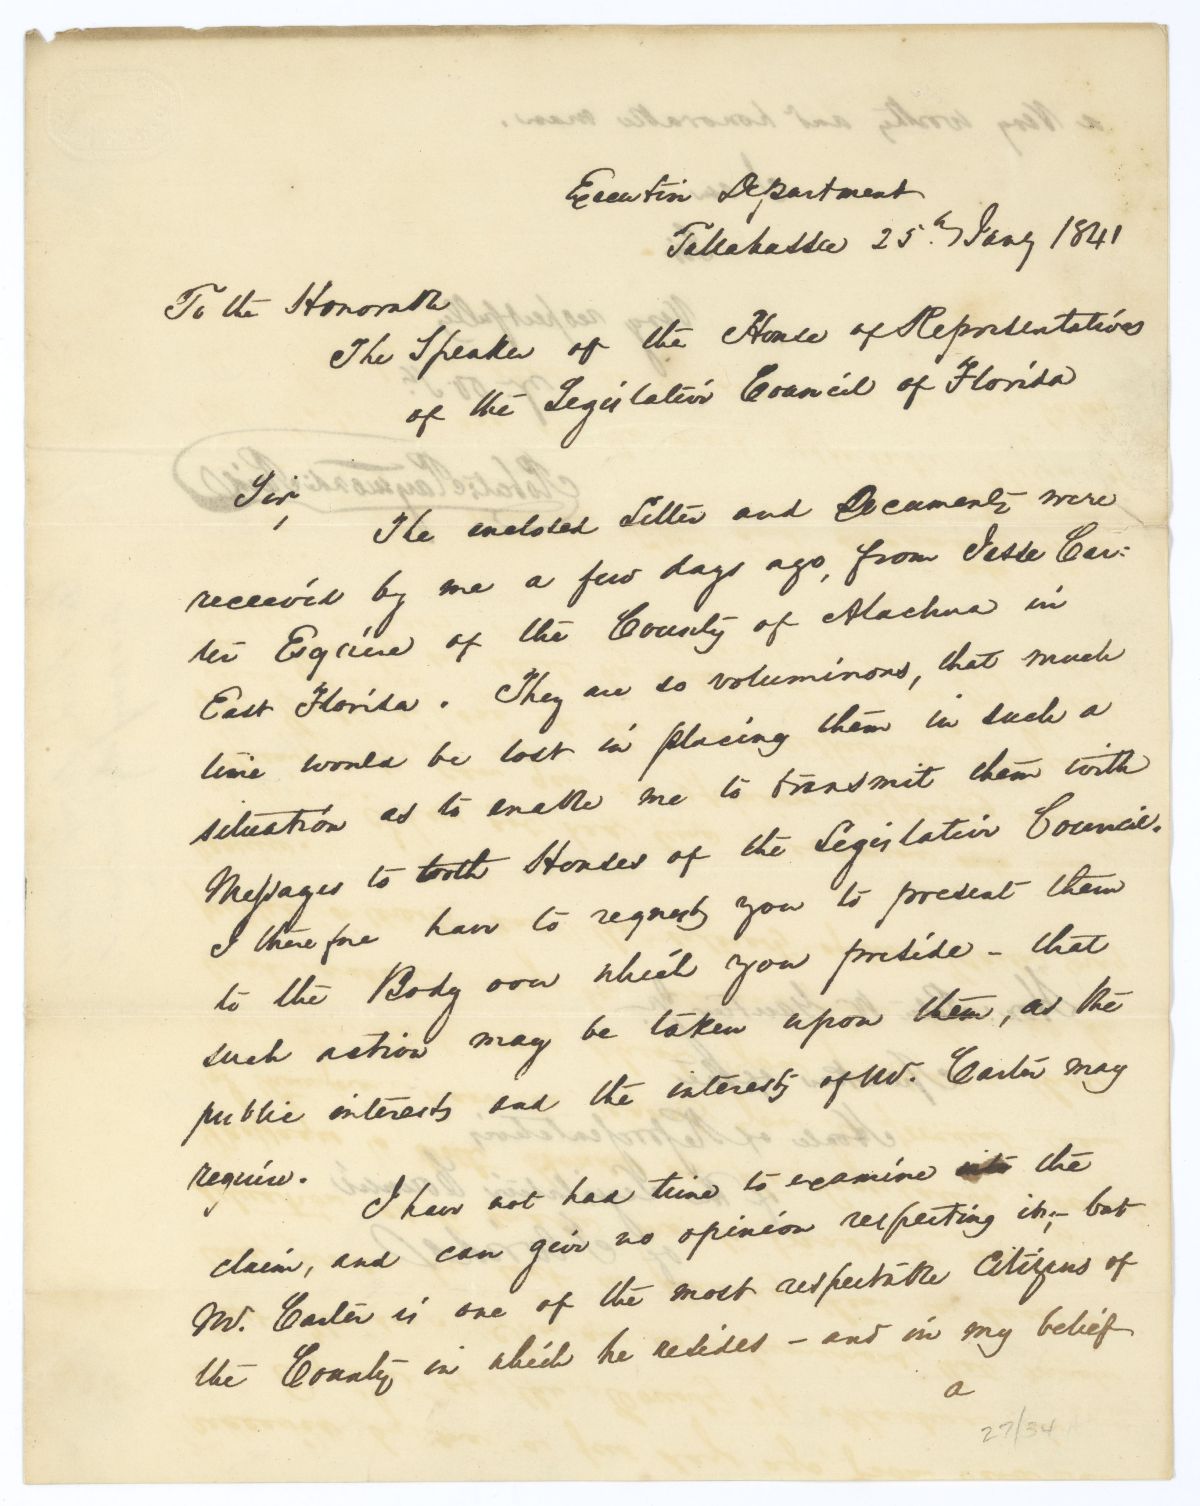 Executive Department
Tallahassee 25th Jany 1841
To the Honorable
The Speaker of the House of Representatives
of the Legislative Council of Florida
Sir,
The enclosed Letter and Documents were
received by me a few days ago, from Jesse Car-
ter Esquire of the County of Alachua in
East Florida. They are so voluminous, that much
time would be lost in placing them in such a
situation as to enable me to transmit them with
Messages to both Houses of the Legislative Council.
I therefore have to request you to present them
to the Body over which you preside - that
such action may be taken upon them, as the
public interests and the interests of Mr. Carter may
require.
I have not had time to examine into the
claim, and can give no opinion respecting it; - but
Mr. Carter is one of the most respectable Citizens of
the County in which he resides - and in my belief
a
27/34